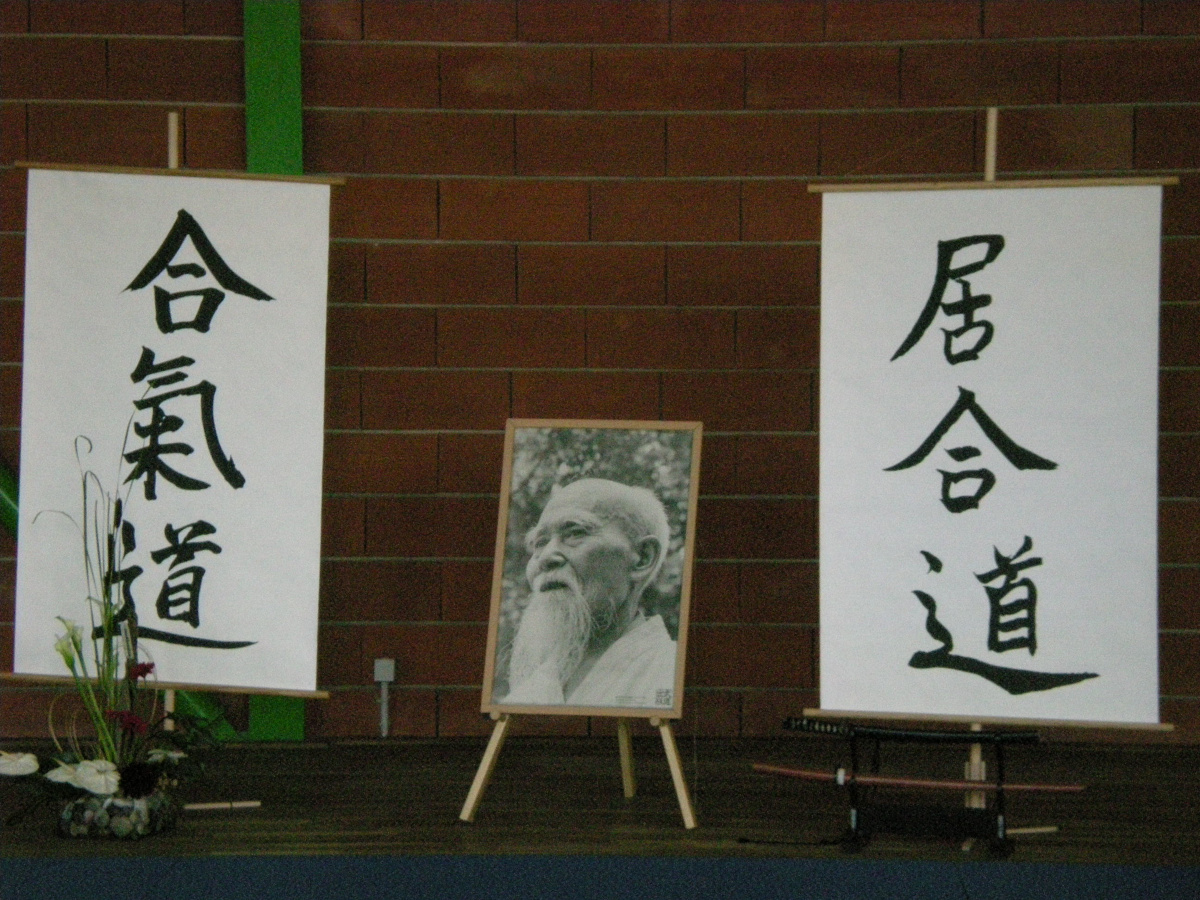 合
氣
道
居
合
道